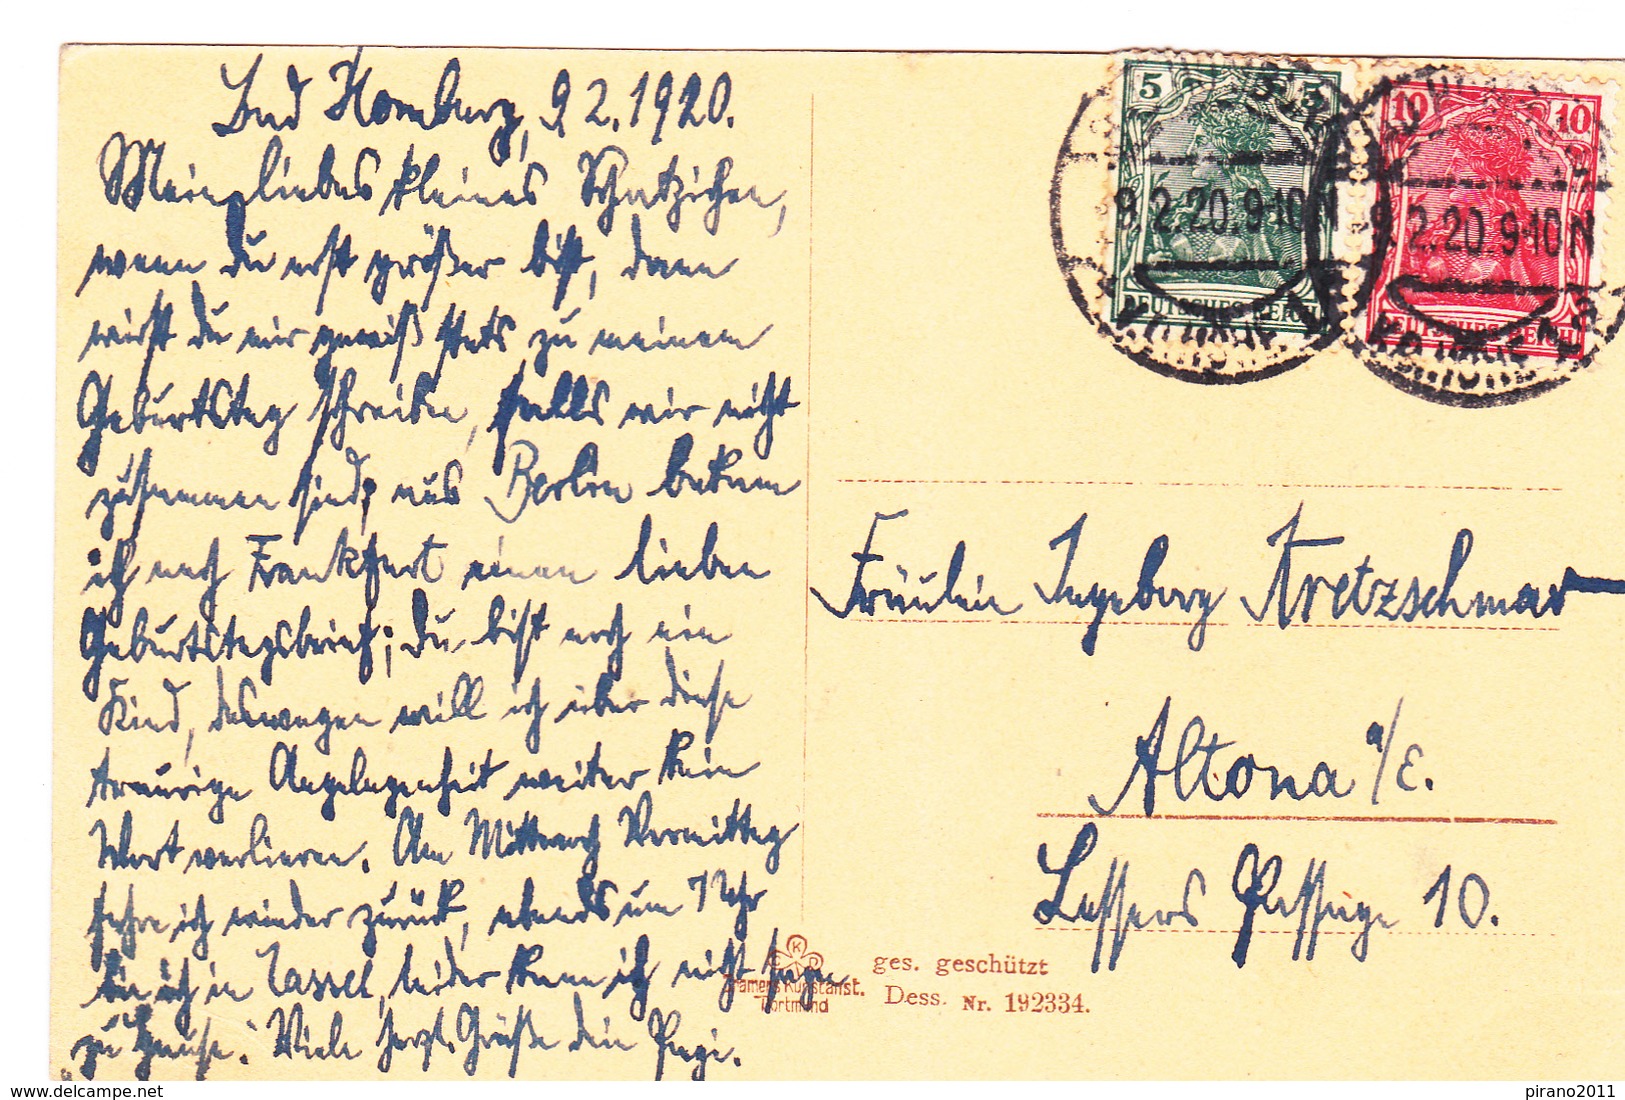 Bad Homburg, 9 2. 1920.
Mein liebes kleines Schatzichen,
wenn du erst größer bist, dann
wirst du mir gewiß stets zu meinem
Geburtstag schreiben, falls wir nicht
zusammen sind; aus Berlin bekam
ich nach Frankfurt einen lieben
Geburtstagsbrief; Du bist noch ein
Kind, deswegen will ich über diese
traurige Angelegenheit weiter kein
Wort verlieren. Am Mittwoch Vormittag
fahre ich wieder zurück, abends um 7 Uhr
bin ich in Cassel, leider kann ich nicht sagen
"zu Hause". Viele herzl. Grüße dein
5 5
DEUTSCHES REICH
9.2.20.9-10N
10 10
DEUTSCHES REICH
9.2.20.9-10N
Fräulein Ingeborg Kretzschmar
Altona a/E.
Lessers Passage 10.
K
Cramers Kunstanst.
Dortmund
ges. geschützt
Dess. Nr. 192334.
delcampe.net
pirano2011